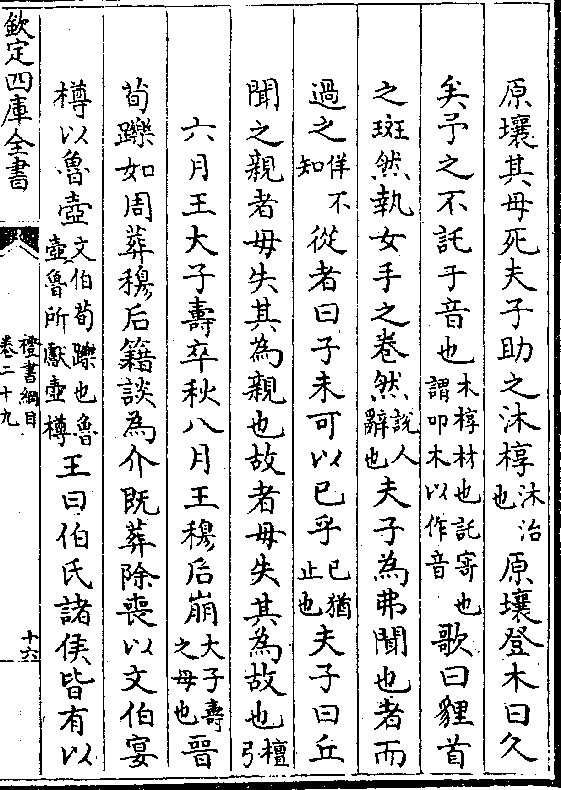 原壤其母死夫子助之沐椁沐治也原壤登木曰久
矣予之不託于音也木椁材也託寄也謂叩木以作音歌曰貍首
之斑然執女手之卷然說人辭也夫子為弗聞也者而
過之佯不知從者曰子未可以已乎已猶止也夫子曰丘
聞之親者毋失其為親也故者毋失其為故也檀弓
六月王大子壽卒秋八月王穆后崩大子壽之母也晉
荀躒如周葬穆后籍談為介既葬除喪以文伯宴
樽以魯壺文伯荀躒也魯壺魯所獻壺樽王曰伯氏諸侯皆有以
欽定四庫全書
禮書綱目
卷二十九
十六